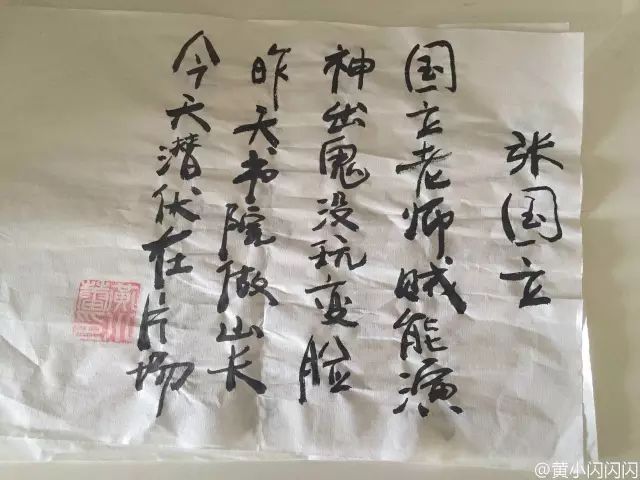 张国立
国立老师贼能演
神出鬼没玩变脸
昨天书院做山长
今天潜伏在片场
@黄小闪闪闪